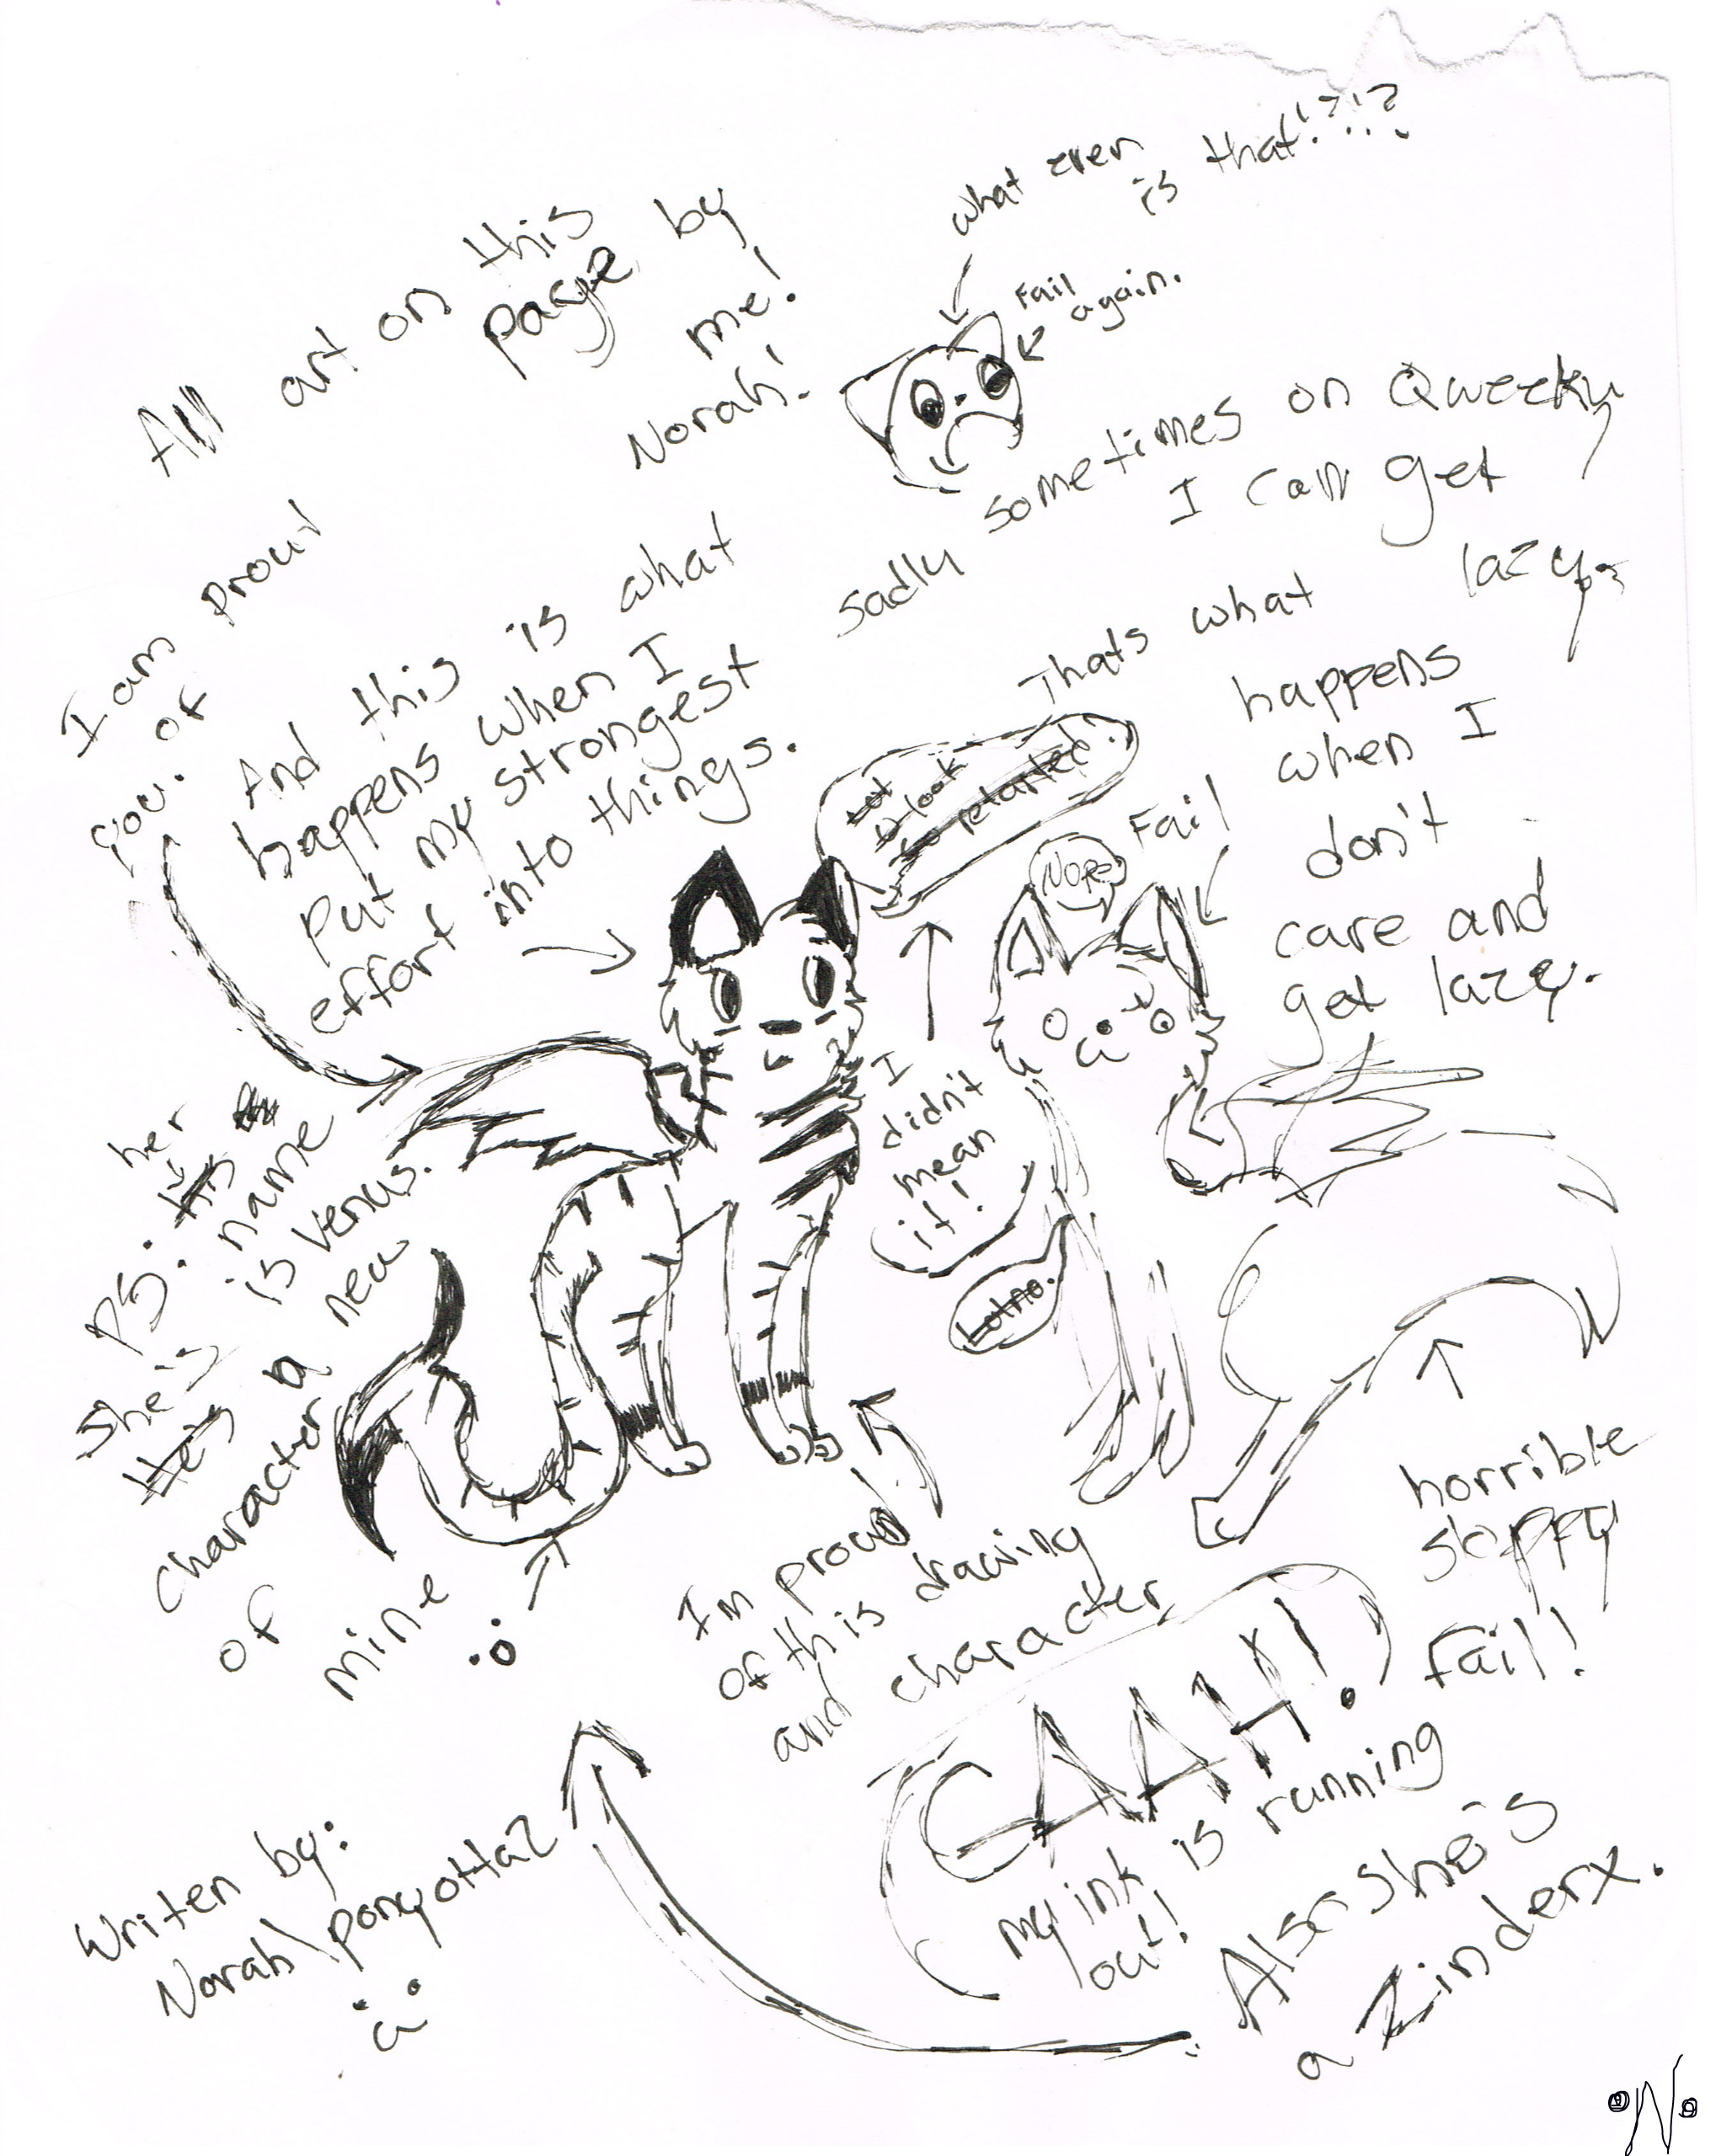 what even
is that!?!?
Fail
again.
All art on this
page by
me!
Norah!
sadly sometimes on Qweeky
I can get
lazy.
I am proud
of
you.
And this is what
happens when I
put my strongest
effort into things.
Thats what
happens
when I
don't
care and
get lazy.
look
so retarted.
Nope
Fail
I
didn't
mean
it!
Lolno.
her
PS. his name
is Venus.
She's
He's a new
character
of
mine
Im proud
of this drawing
and character
horrible
sloppy
fail!
GAAH!
my ink is running
out!
Also she's
a Zinderx.
Writen by:
Norah\ponyotta2
N